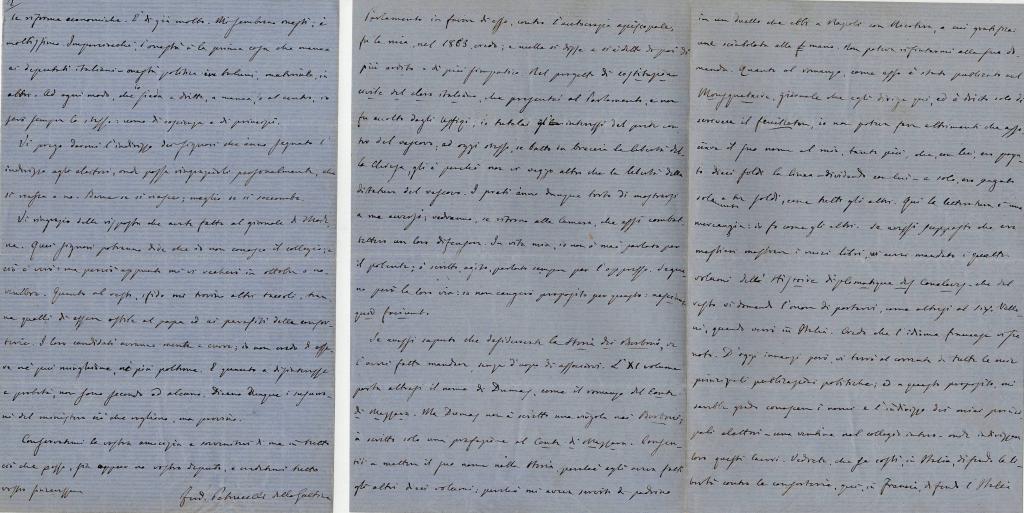 le riforme economiche. E di già molto. Mi sembrano onesti; è
moltissimo. Imperocchè, l'onestà è la prima cosa che manca
ai deputati italiani - onestà politica in taluni, materiale, in
altri. Ad ogni modo, che sieda a dritta, a manca, o al centro, io
sarò sempre lo stesso: uomo di coscienza e di principii.
Vi prego darmi l'indirizzo dei signori che
indirizzo agli elettori, onde possa ringraziarli personalmente, che
si riesca o no. Bene se si riesce; meglio se si soccombe.
Vi ringrazio della risposta che avete fatta al giornale di
Quei signori potranno dire che io non conosco il collegio; e
ciò è vero: ma perciò appunto mi vi recherei in ottobre o no-
vembre. Quanto al resto, sfido mi trovino altri
ne quelli di essere ostile al papa ed ai parassiti della consor-
teria. I loro candidati avranno mente e cuore; io non credo di esse-
re nè più nè più poltrone. E quanto a
e probità, non sono secondo ad alcuno. Dicano dunque i
ni del ministero ciò che vogliono, ma provino.
Conservatemi la vostra amicizia e servitevi di me in tutto
ciò che posso, sia o no vostro deputato, e credetemi tutto
vostro
Ferd. Petruccelli della Gattina
Parlamento in favore di esso, contro l'autocrazia episcopale,
fu la mia, nel 1863, credo; e nulla si disse e si è detto di poi di
più ardito e di più simpatico. Nel progetto di costituzione
civile del clero italiano, che presentai al Parlamento, e non
fu accolto dagli uffizi, io tutelai gli interessi del prete con-
tro del vescovo, ed oggi stesso, se batto in breccia la libertà del-
la Chiesa, gli è perchè non vi veggo altro che la libertà della
dittatura del vescovo. I preti hanno dunque torto di mostrarsi
a me avversi; vedranno, se ritorno alla Camera, che essi combat-
tettero un loro difensore. In vita mia, io non ò mai parlato per
il potente; ò scritto, agito, parlato sempre per l'oppresso.
no però la loro via: io non cangerò proposito per questo: nesciunt
quid faciunt.
Se avessi saputo che desideravate la Storia dei Borboni, ve
l'avrei fatta mandare senza d'uopo di associarvi. L'XI volume
porta altresì il nome di Dumas, come il romanzo del Conte
di Mazzara. Ma Dumas non à scritto una virgola nei Borboni;
à scritto solo una prefazione al Conte di Mazzara. Consen-
tii a mettere il suo nome nella Storia, perchè egli aveva fatti
gli altri dieci volumi; perchè mi aveva servito di padrino
in un duello che ebbi a Napoli con Nicotera, a cui
una sciabolata alla mano. Non poteva rifiutarmi alla sua di-
manda. Quanto al romanzo, come esso è stato pubblicato nel
Mousquetaire, giornale che egli dirige qui, ed à dritto solo di
scrivere il feuilleton, io non poteva fare altrimenti che asso-
ciare il suo nome al mio, tanto più, che, con lui, ero paga-
to dieci soldi la linea - dividendo con lui - e solo, ero pagato
solo a tre soldi, come tutti gli altri. Qui la letteratura è una
mercanzia: io fo come gli altri. Se avessi supposto che era-
i miei libri, vi avrei mandato i quattro
volumi della Histoire diplomatique des Conclaves - che del
resto vi domando l'onore di portarvi, come altresì al sig.
quando verrò in Italia. Credo che l'idioma francese vi sia
noto. D'oggi innanzi però vi terrò al corrente di tutte le mie
principali pubblicazioni politiche; ed a questo proposito, mi
sarebbe grato conoscere i nomi e l'indirizzo dei miei princi-
pali elettori - una ventina nel collegio intero - onde indirizzare
loro questi lavori. Vedrete, che se costì, in Italia, difendo la li-
bertà contro la consorteria, qui, in Francia, difendo l'Italia